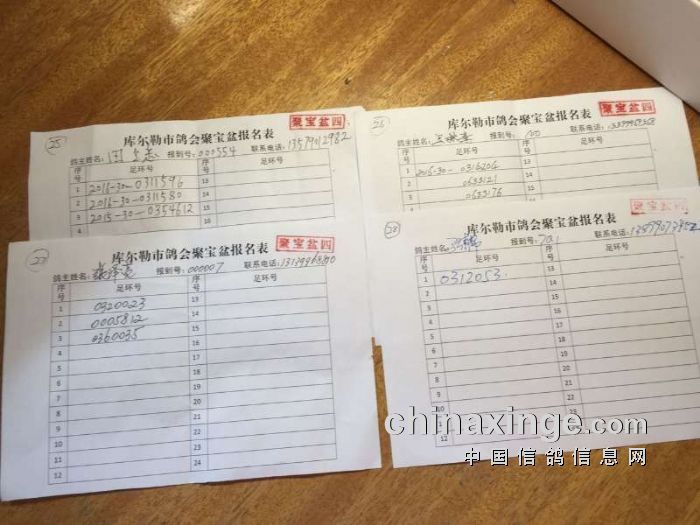 25
聚宝盆四
库尔勒市鸽会聚宝盆报名表
鸽主姓名: 报到号: 000554 联系电话: 13579012982
序号 足环号 序号 足环号
1 2016-30-0311596 13
2 2016-30-0311580 14
3 2015-30-0354612 15
26
聚宝盆四
库尔勒市鸽会聚宝盆报名表
鸽主姓名: 报到号: 联系电话:
序号 足环号 序号 足环号
1 2016-30-0316206 13
2 14
3 15
聚宝盆四
库尔勒市鸽会聚宝盆报名表
鸽主姓名: 报到号: 000007 联系电话:
序号 足环号 序号 足环号
1 0320023 13
2 0005812 14
3 0360035 15
4 16
5 17
6 18
7 19
8 20
9 21
10 22
11 23
12 24
28
聚宝盆四
库尔勒市鸽会聚宝盆报名表
鸽主姓名: 报到号: 联系电话:
序号 足环号 序号 足环号
1 0312053 13
2 14
3 15
4 16
5 17
6 18
7 19
8 20
9 21
10 22
11 23
12 24
chinaxinge.com
中国信鸽信息网